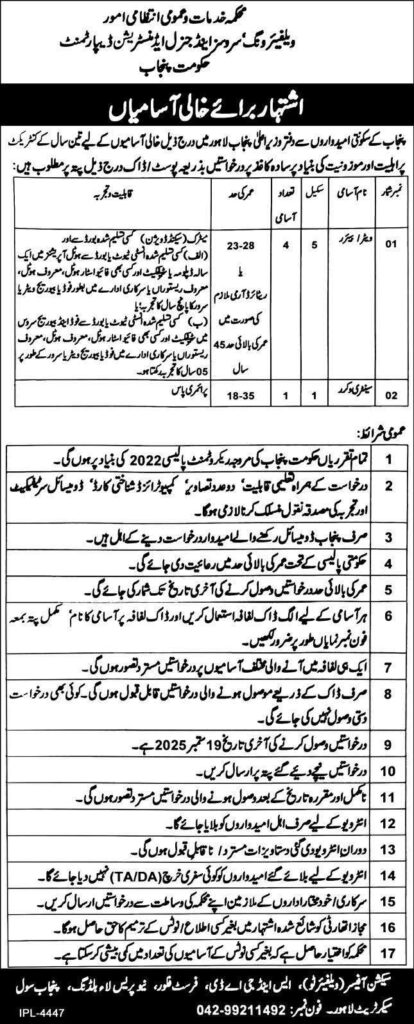 محکمہ خدمات و عمومی انتظامی امور
ویلفیئر ونگ، سروسز اینڈ جنرل ایڈمنسٹریشن ڈیپارٹمنٹ
حکومت پنجاب
اشتہار برائے خالی آسامیاں
پنجاب کے سکونتی امیدواروں سے دفتر وزیر اعلیٰ پنجاب لاہور میں درج ذیل خالی آسامیوں کے لیے تین سال کے کنٹریکٹ
پر اہلیت اور موزونیت کی بنیاد پر سادہ کاغذ پر درخواستیں بذریعہ پوسٹ/ ڈاک درج ذیل پتہ پر مطلوب ہیں:
نمبر شمار نام آسامی سکیل تعداد آسامی عمر کی حد قابلیت و تجربہ
01 ویٹر/ بیئرر 5 4 23-28
یا
ریٹائرڈ آرمی ملازم
کی صورت میں
عمر کی بالائی حد 45
سال
میٹرک (سیکنڈ ڈویژن) کسی تسلیم شدہ بورڈ سے اور
(الف) کسی تسلیم شدہ انسٹی ٹیوٹ یا بورڈ سے ہوٹل آپریشنز میں ایک
سالہ ڈپلومہ یا سرٹیفکیٹ اور کسی بھی فائیو اسٹار ہوٹل، معروف ہوٹل،
معروف ریستوراں یا سرکاری ادارے میں بطور فوڈ یا بیوریج ویٹر یا
سرور کا پانچ سال کا تجربہ؛ یا
(ب) کسی تسلیم شدہ انسٹی ٹیوٹ یا بورڈ سے فوڈ اینڈ بیوریج سروس
میں سرٹیفکیٹ اور کسی بھی فائیو اسٹار ہوٹل، معروف ہوٹل، معروف
ریستوراں یا سرکاری ادارے میں فوڈ یا بیوریج ویٹر یا سرور کے طور پر
05 سال کا تجربہ رکھتا ہو۔
02 سینٹری ورکر 1 1 18-35 پرائمری پاس
عمومی شرائط:
1 تمام تقرریاں حکومت پنجاب کی مروجہ ریکروٹمنٹ پالیسی 2022 کی بنیاد پر ہوں گی۔
2 درخواست کے ہمراہ تعلیمی قابلیت، دو عدد تصاویر، کمپیوٹرائزڈ شناختی کارڈ، ڈومیسائل سرٹیفکیٹ
اور تجربہ کی مصدقہ نقول منسلک کرنا لازمی ہوگا۔
3 صرف پنجاب ڈومیسائل رکھنے والے امیدوار درخواست دینے کے اہل ہیں۔
4 حکومتی پالیسی کے تحت عمر کی بالائی حد میں رعایت دی جائے گی۔
5 عمر کی بالائی حد درخواستیں وصول کرنے کی آخری تاریخ تک شمار کی جائے گی۔
6 ہر آسامی کے لیے الگ ڈاک لفافہ استعمال کریں اور ڈاک لفافہ پر آسامی کا نام، مکمل پتہ بمعہ
فون نمبر نمایاں طور پر ضرور لکھیں۔
7 ایک ہی لفافہ میں آنے والی مختلف آسامیوں پر درخواستیں مسترد تصور ہوں گی۔
8 صرف ڈاک کے ذریعے موصول ہونے والی درخواستیں قابل قبول ہوں گی۔ کوئی بھی درخواست
دستی وصول نہیں کی جائے گی۔
9 درخواستیں وصول کرنے کی آخری تاریخ 19 ستمبر 2025 ہے۔
10 درخواستیں نیچے دیئے گئے پتہ پر ارسال کریں۔
11 نامکمل اور مقررہ تاریخ کے بعد وصول ہونے والی درخواستیں مسترد تصور ہوں گی۔
12 انٹرویو کے لیے صرف اہل امیدواروں کو بلایا جائے گا۔
13 دوران انٹرویو دی گئی دستاویزات مسترد/ ناقابل قبول ہوں گی۔
14 انٹرویو کے لیے بلائے گئے امیدواروں کو کوئی سفری خرچ (TA/DA) نہیں دیا جائے گا۔
15 سرکاری / خود مختار اداروں کے ملازمین اپنے محکمہ کی وساطت سے درخواستیں ارسال کریں۔
16 مجاز اتھارٹی کو شائع شدہ اشتہار میں بغیر کسی اطلاع / نوٹس کے ترمیم کا حق حاصل ہوگا۔
17 محکمہ کو اختیار حاصل ہے کہ بغیر کسی نوٹس کے آسامیوں کی تعداد میں کمی بیشی کر سکتا ہے۔
سیکشن آفیسر (ویلفیئر ٹو)، ایس اینڈ جی اے ڈی، فرسٹ فلور، نیو پریس لاء بلڈنگ، پنجاب سول
سیکرٹریٹ لاہور۔ فون نمبر: 042-99211492
IPL-4447